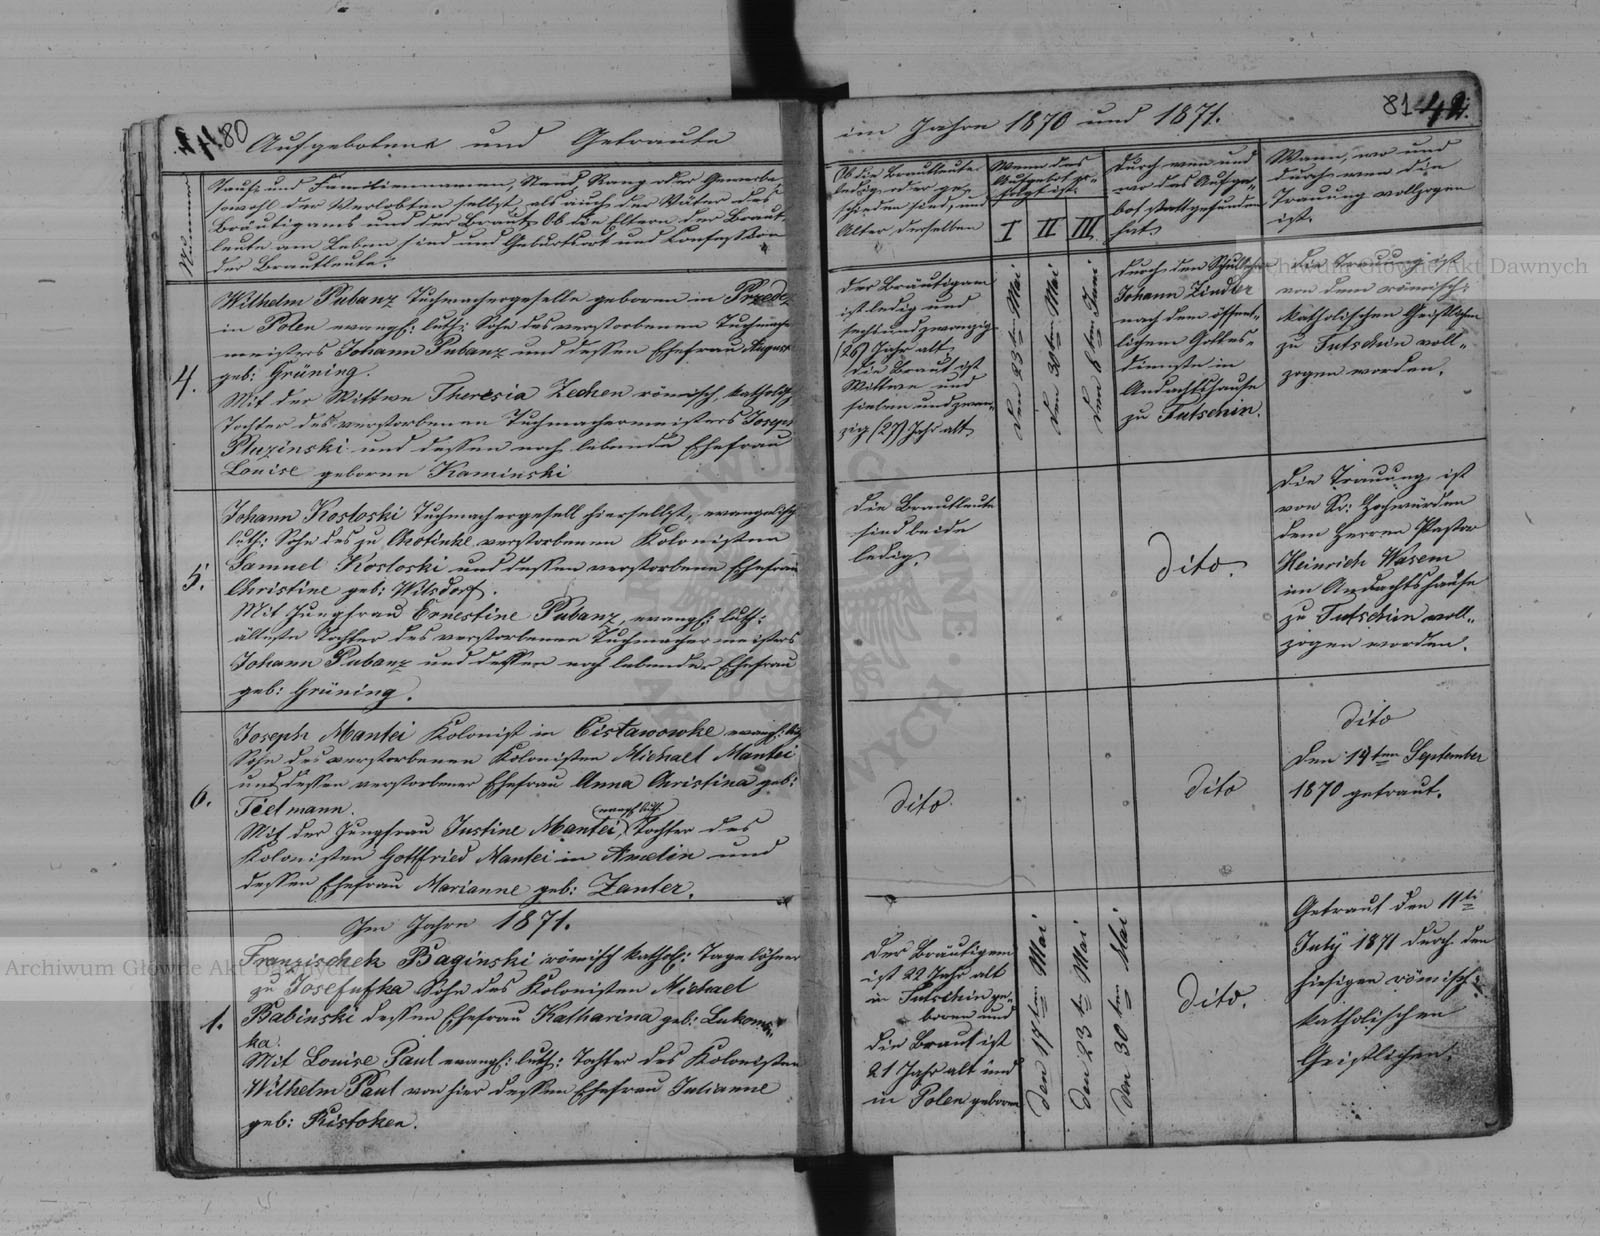 80
Aufgebotene und Getraute
Nummer
Tauf- und Familiennamen, Stand, Rang oder Gewerbe
sowohl der Verlobten selbst, als auch der Väter des
Bräutigams und der Braut. Ob die Eltern der Braut-
leute am Leben sind und Geburtsort und Confession
der Brautleute.
4.
Wilhelm Pubanz Tuchmachergeselle geboren in
in Polen evangl: luth: Sohn des verstorbenen Tuchmach
meisters Johann Pubanz und dessen Ehefrau August
geb: Grüning.
Mit der Wittwe Theresia Zechen römisch, katholisch
Tochter des verstorbenen Tuchmachermeisters Joseph
Pluzinski und dessen noch lebende Ehefrau
Louise geborne Kaminski
5.
Johann Kosloski Tuchmachergesell hierselbst, evangelisch
luth: Sohn des zu verstorbenen Kolonisten
Samuel Kosloski und dessen verstorbene Ehefrau
Christine geb: Wilsdorf.
Mit Jungfrau Ernestine Pubanz, evangl: luth:
älteste Tochter des verstorbenen Tuchmachermeisters
Johann Pubanz und dessen noch lebender Ehefrau
geb: Grüning.
6.
Joseph Mantei Kolonist in Cistawowke evangl: luth
Sohn des verstorbenen Kolonisten Michael Mantei
und dessen verstorbener Ehefrau Anna Christina geb:
Tietmann.
evangl: luth:
Mit der Jungfrau Justine Mantei, Tochter des
Kolonisten Gottfried Mantei in Amelin und
dessen Ehefrau Marianne geb: Zanter.
Im Jahre 1871.
1.
Franzischek Baginski römisch kathol: Tagelöhner
zu Josefufka Sohn des Kolonisten Michael
Babinski dessen Ehefrau Katharina geb: Lukoms-
ka.
Mit Louise Paul evangl: luth: Tochter des Kolonisten
Wilhelm Paul von hier dessen Ehefrau Julianne
geb: Ristoken.
81
42.
im Jahre 1870 und 1871.
Ob die Brautleute
ledig oder ge-
schieden sind, und
Alter derselben
Wann das
Aufgebot ge-
folgt ist.
I II III
Durch wen und
wo das Aufge-
bot stattgefunden
hat
Wann, wo und
durch wen die
Trauung vollzogen
ist
Der Bräutigam
ist ledig und
sechsundzwanzig
(26) Jahr alt,
die Braut ist
Wittwe und
siebenundzwan-
zig (27) Jahr alt
den 23ten Mai
den 30ten Mai
den 6ten Juni
durch den Schullehrer
Johann Zindler
nach dem öffent-
lichem Gottes-
dienste in
Andachtshause
zu Tutschin.
Die Trauung ist
von dem römisch:
katholischen Geistlichen
zu Tutschin voll-
zogen worden.
Die Brautleute
sind beide
ledig.
dito.
Die Trauung ist
von Sr: Hochwürden
dem Herrn Pastor
Heinrich Wasem
im Andachtshause
zu Tutschin voll-
zogen worden.
dito.
dito
dito
den 14ten September
1870 getraut.
Der Bräutigam
ist 22 Jahr alt
in Tutschin ge-
boren und
die Braut ist
21 Jahr alt und
in Polen geboren
den 17ten Mai
den 23ten Mai
den 30ten Mai
dito.
Getraut den 11ten
July 1871 durch den
hiesigen römisch:
katholischen
Geistlichen.
Archiwum Główne Akt Dawnych
Archiwum Główne Akt Dawnych